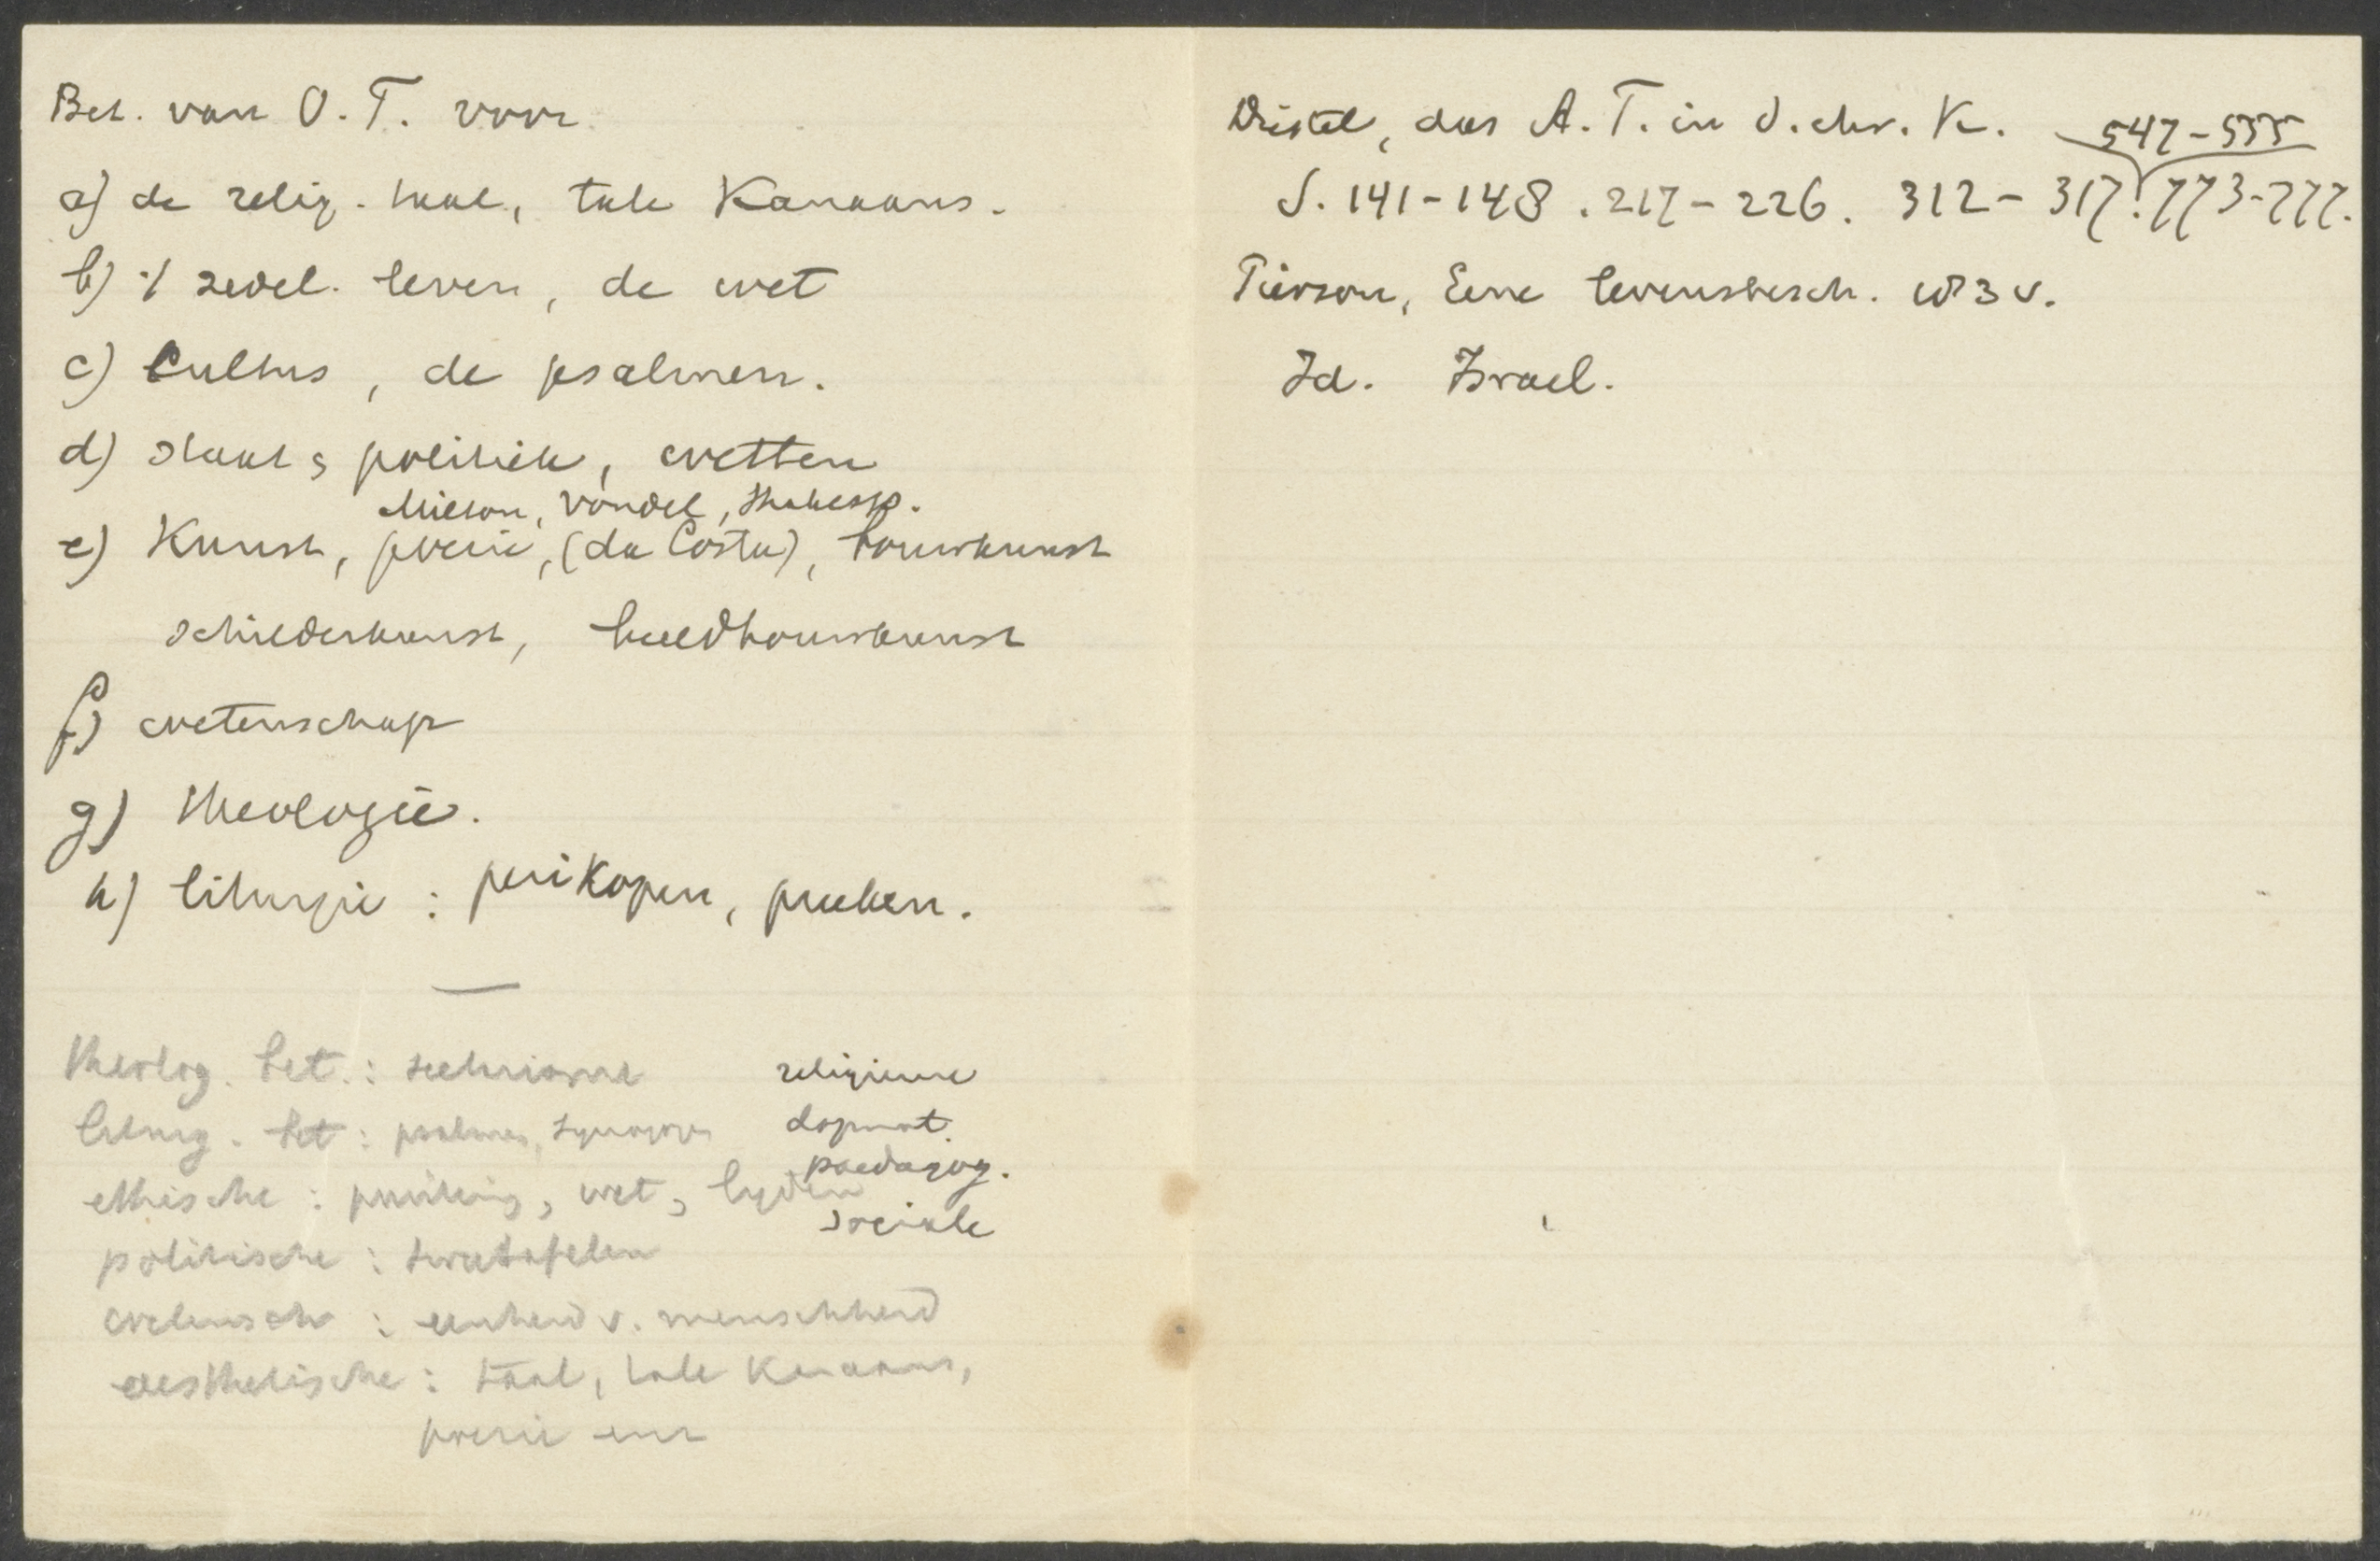 Bet. van O.T. voor
a) de relig. taal, tale Kanaans.
b) 't zedel. leven, de wet
c) Cultus, de psalmen.
d) staat, politiek, wetten
Milton, Vondel, Shakesp.
e) Kunst, poezie, (da Costa), bouwkunst
schilderkunst, beeldhouwkunst
f) wetenschap
g) theologie.
h) liturgie: perikopen, preken.
theolog. bet.:
religieuse
liturg. bet: psalmen, synagoge
dogmat.
paedagog.
ethische: , wet, lijden
sociale
politische:
wetensch: eenheid v. menschheid
aesthetische: taal, tale Kanaans,
poezie enz
Diestel, das A.T. in d. chr. K. 547-555
S. 141-148. 217-226. 312-317. 773-777.
Pierson, Eene levensbesch. 83 v.
Id. Israel.